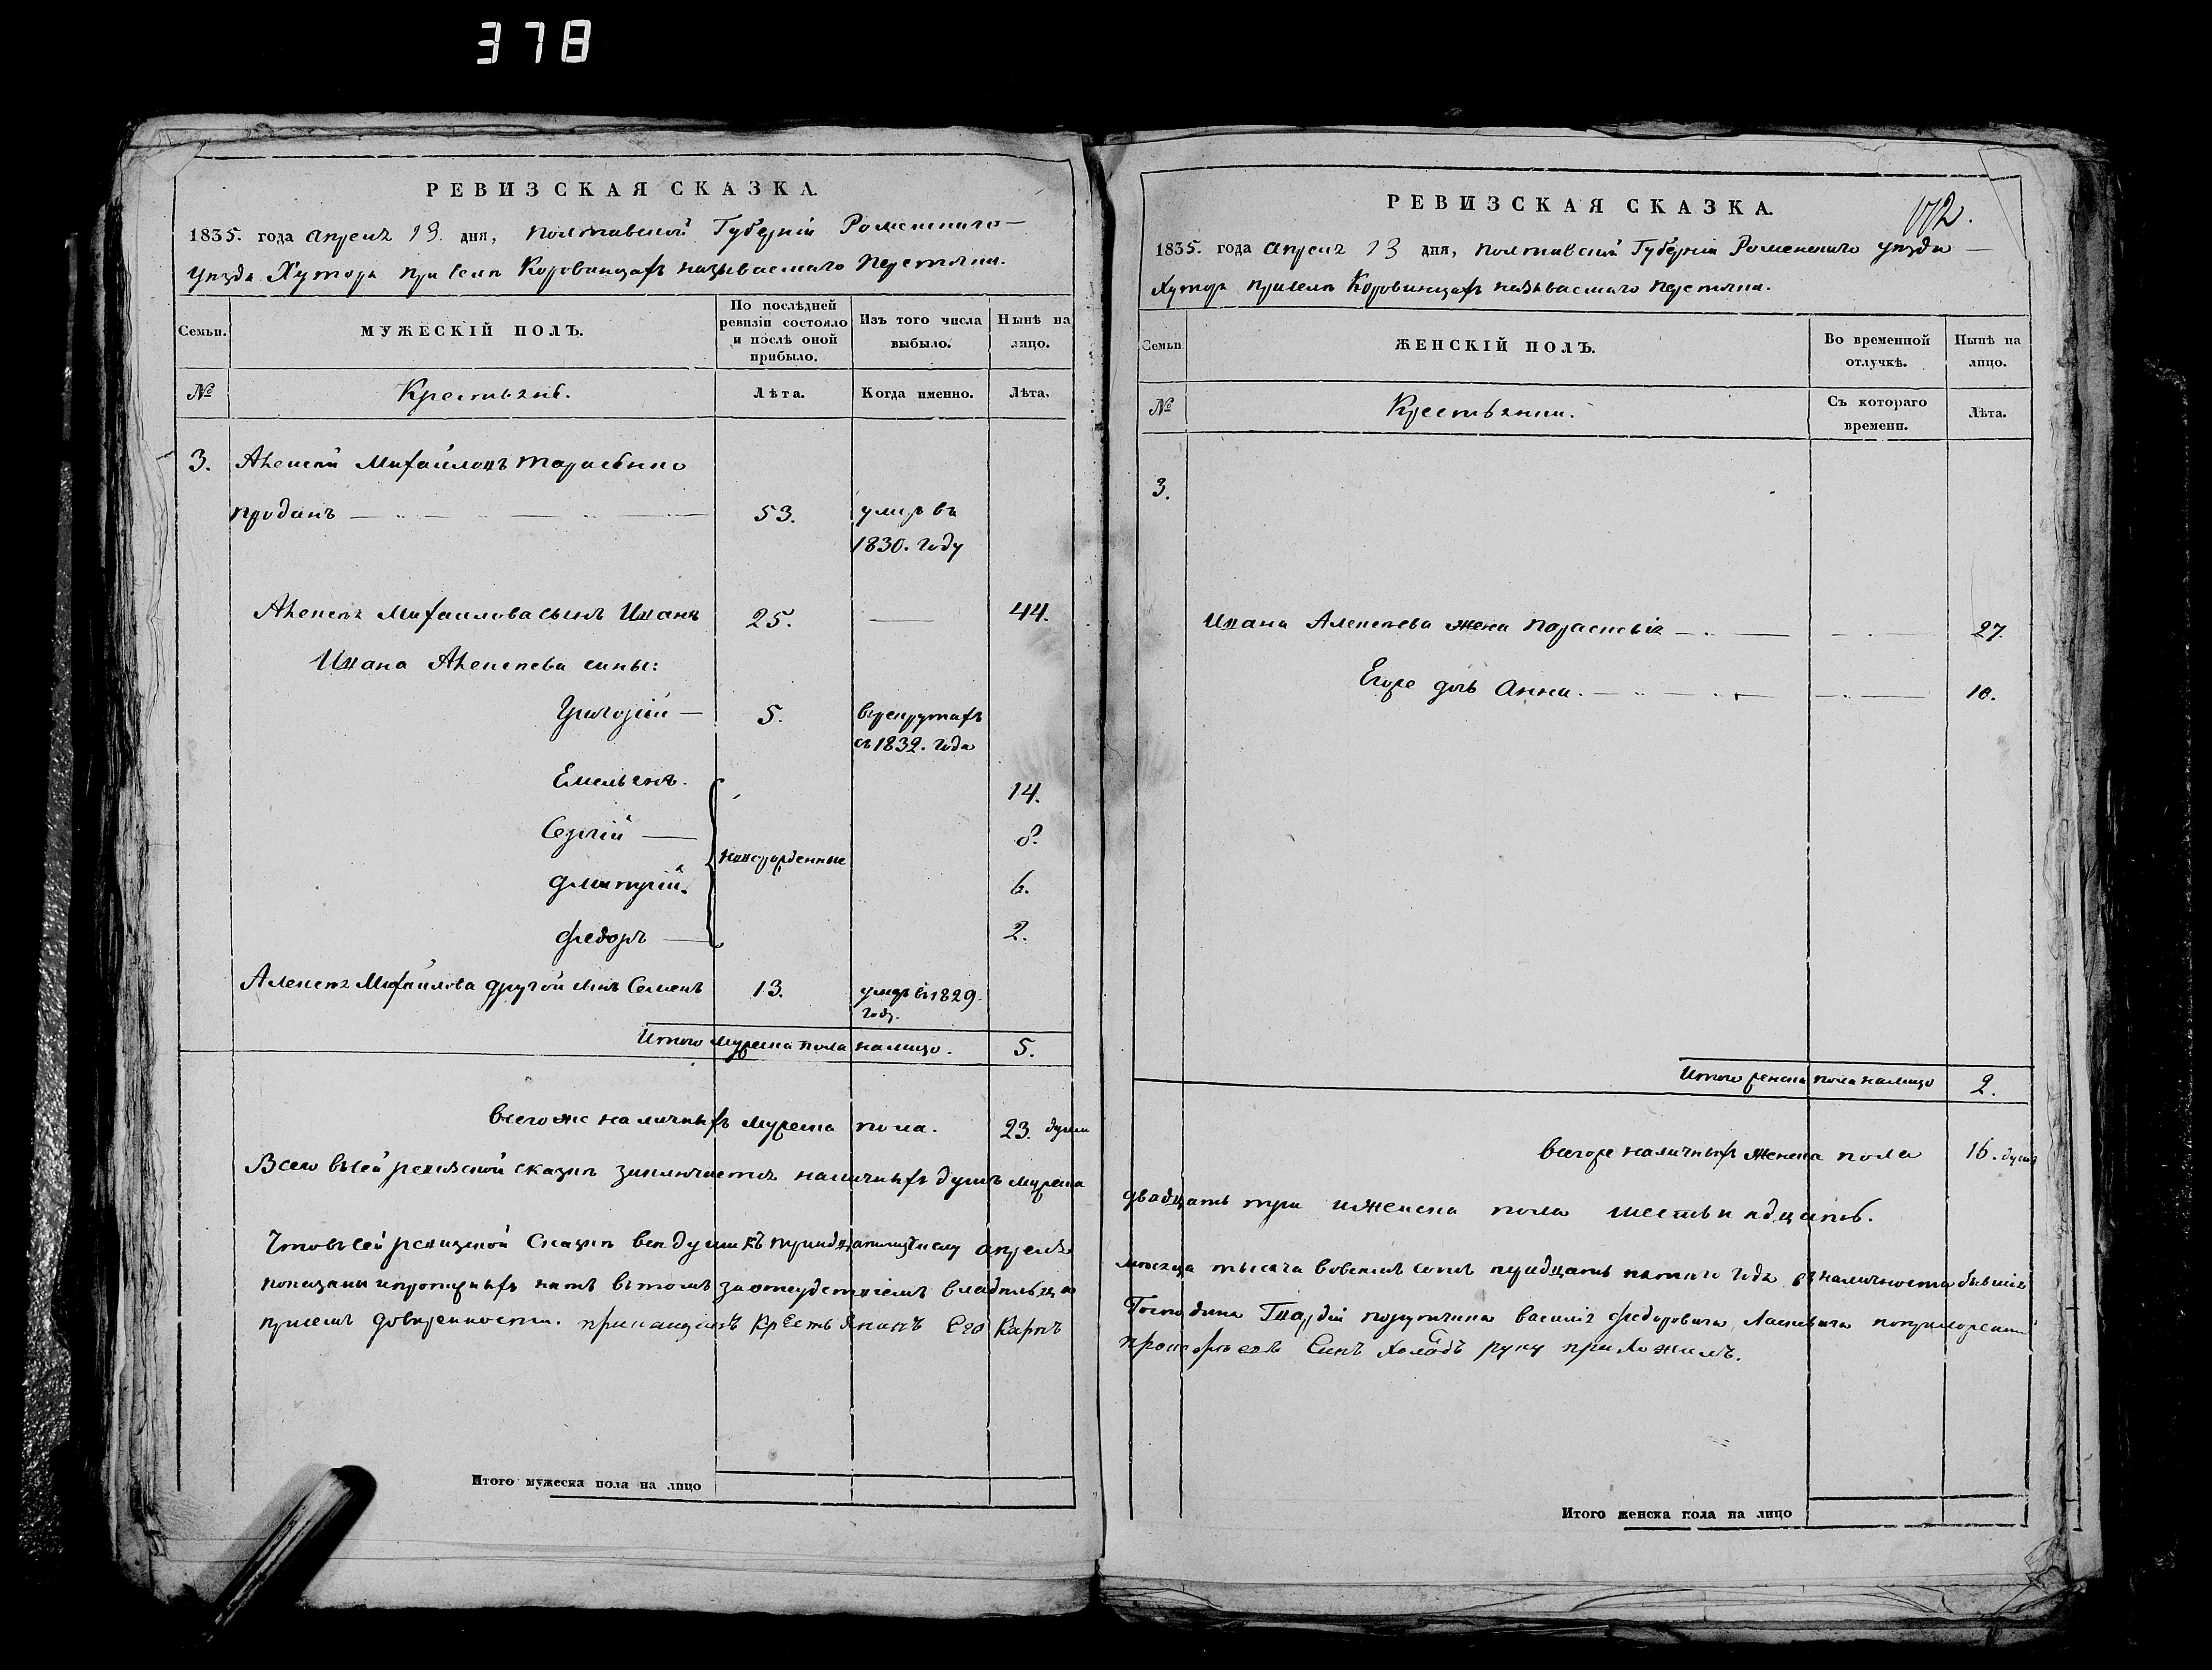 378
РЕВИЗСКАЯ СКАЗКА.
1835. года Апреля 13. дня, Полтавской Губерніи Роменскаго
уезда Хутора при селе Коровинцахъ называемаго
Семьи.
МУЖЕСКІЙ ПОЛЪ.
По послѣдней ревизіи состояло и послѣ оной прибыло.
Изъ того числа выбыло.
Нынѣ на лицо.
№
Крестьянъ.
Лѣта.
Когда именно.
Лѣта.
3. Алексей Михайловъ
проданъ 53. умеръ въ
1830. году
Алексея Михайлова сынъ Иванъ 25. 44.
Ивана Алексеева сины:
Григорій 5. в рекрутахъ
съ 1832. года
Емельянъ. 14.
Сергій 8.
новорожденные
Дмитрій. 6.
Федоръ 2.
Алексея Михайлова другой синъ Семенъ 13. умеръ в 1829.
году.
Итого мужеска пола налицо. 5.
Всегоже наличныхъ мужеска пола. 23. души
Всего въ сей ревизской сказке заключается наличныхъ душъ мужеска
Что въ сей ревизской сказке все души къ тринадцатому числу апреля
показаны и прописныхъ нетъ в томъ за отсудствіемъ владельца
при семъ доверенности. приказанъ Крестьянинъ Его Карпъ
Итого мужеска пола на лицо
РЕВИЗСКАЯ СКАЗКА.
172.
1835. года Апреля 13 дня, Полтавской Губерніи Роменскаго уезда
Хутора при селе Коровинцахъ называемаго
Семьи
ЖЕНСКІЙ ПОЛЪ.
Во временной отлучкѣ.
Нынѣ на лицо.
№
Крестьянки.
Съ котораго времени.
Лѣта.
3.
Ивана Алексеева жена Параскевія 27.
Егоже дочь Анна. 10.
Итого женска пола налицо 2.
Всегоже наличныхъ женска пола 16. душъ
двадцать три и женска пола шестьнадцать.
месяца тысяча восемъ сотъ тридцать пятого года в наличности бывшія
Господина Гвардіи порутчика Василія Федоровича
синъ руку приложилъ.
Итого женска пола на лицо